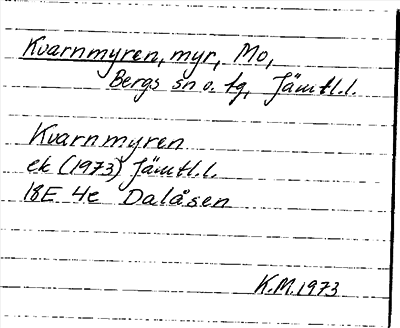 Kvarnmyren, myr, Mo,
Bergs sn o. tg, Jämtl.l.
Kvarnmyren
ek (1973) Jämtl.l.
18E 4e Dalåsen
K.M.1973